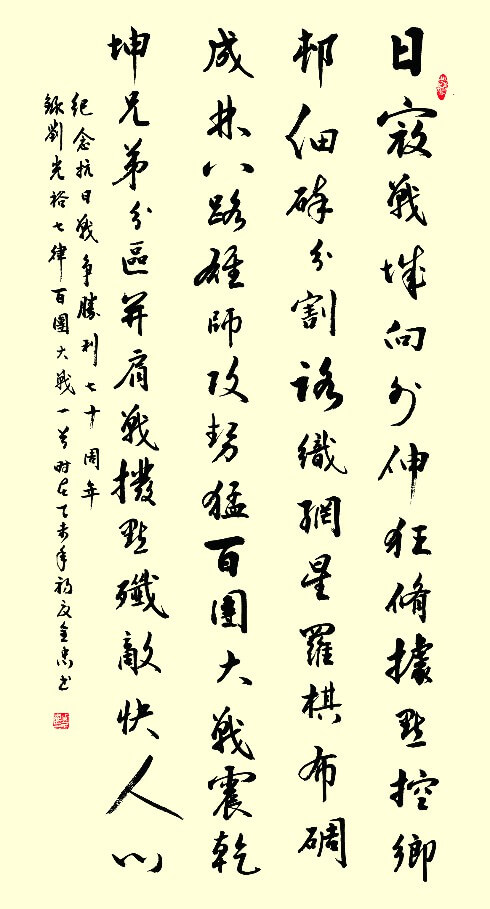 日寇戰城向外伸狂脩據點控鄉
邨細碎分割路織網星羅棋布碉
成林八路雄師攻势猛百團大戰震乾
坤兄弟分區并肩戰撥點殲敵快人心
紀念抗日戰爭勝利七十周年
錄劉光裕七律百團大戰一首时在乙未年初夏金忠书